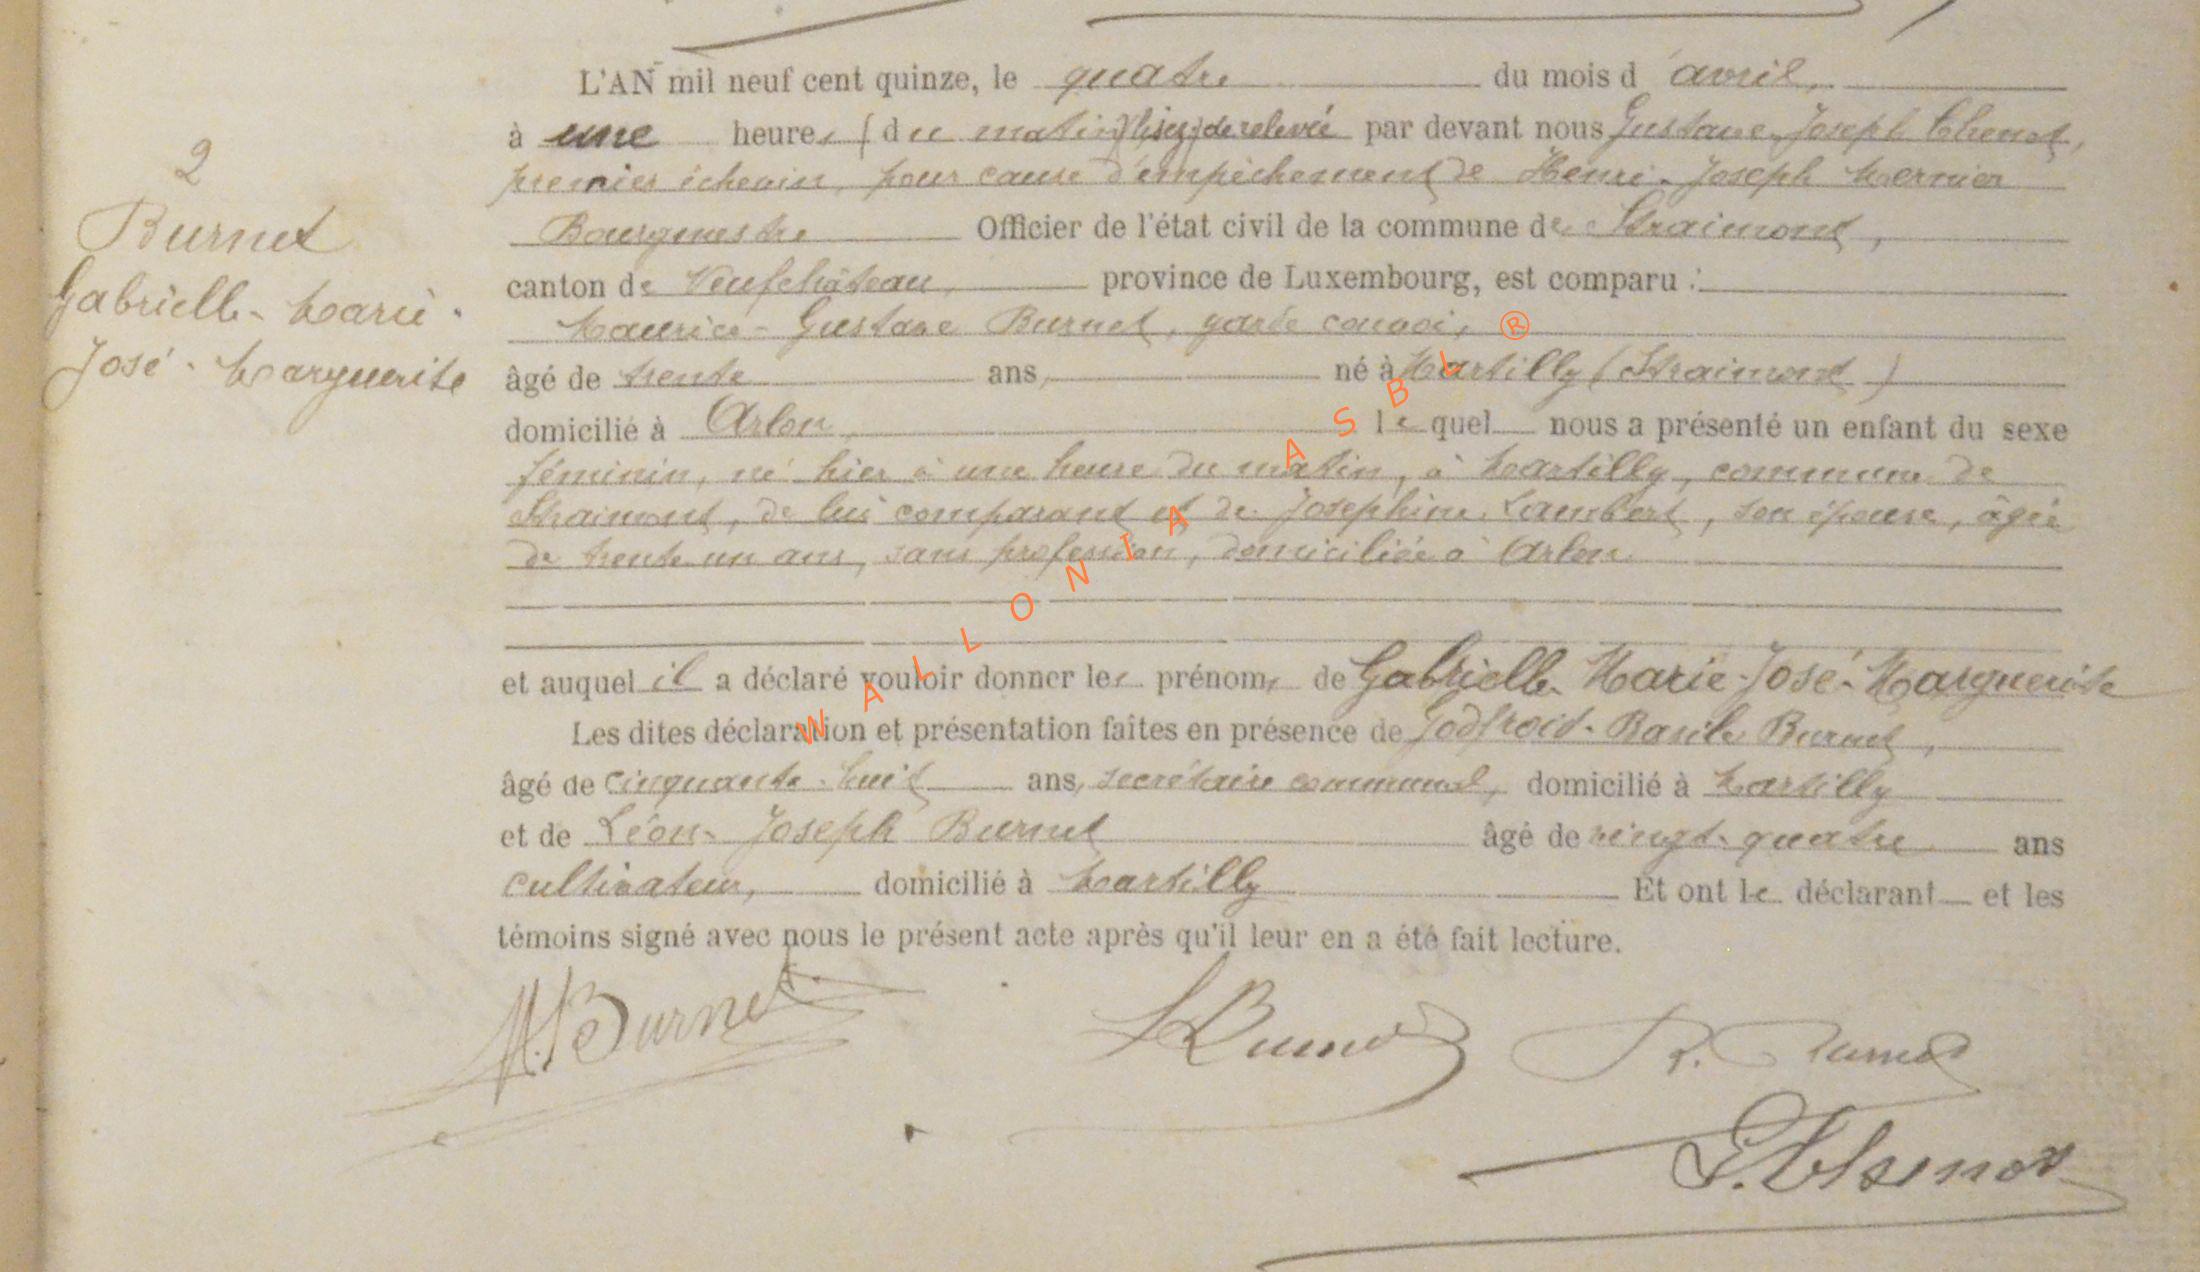 L'AN mil neuf cent quinze, le quatre du mois d'avril,
à une heure, (du matin) (lisez) de relevée par devant nous Gustave-Joseph Thenot,
premier échevin, pour cause d'empêchement de Henri-Joseph Mernier
Bourgmestre Officier de l'état civil de la commune de Straimont,
canton de Neufchâteau, province de Luxembourg, est comparu :
Maurice-Gustave Burnet, garde convoi,
âgé de trente ans, né à Martilly (Straimont)
domicilié à Arlon, lequel nous a présenté un enfant du sexe
féminin, né hier à une heure du matin, à Martilly, commune de
Straimont, de lui comparant et de Joséphine Lambert, son épouse, âgée
de trente un ans, sans profession, domiciliée à Arlon.
et auquel il a déclaré vouloir donner les prénoms de Gabrielle-Marie-José-Marguerite
Les dites déclaration et présentation faites en présence de Godfroid-Basile Burnet,
âgé de cinquante-huit ans, secrétaire communal, domicilié à Martilly
et de Léon-Joseph Burnet âgé de vingt-quatre ans
cultivateur, domicilié à Martilly Et ont le déclarant et les
témoins signé avec nous le présent acte après qu'il leur en a été fait lecture.
2
Burnet
Gabrielle-Marie-
José-Marguerite
M. Burnet
L Burnet
B. Burnet
G. Thenot
WALLONIA ASBL ®